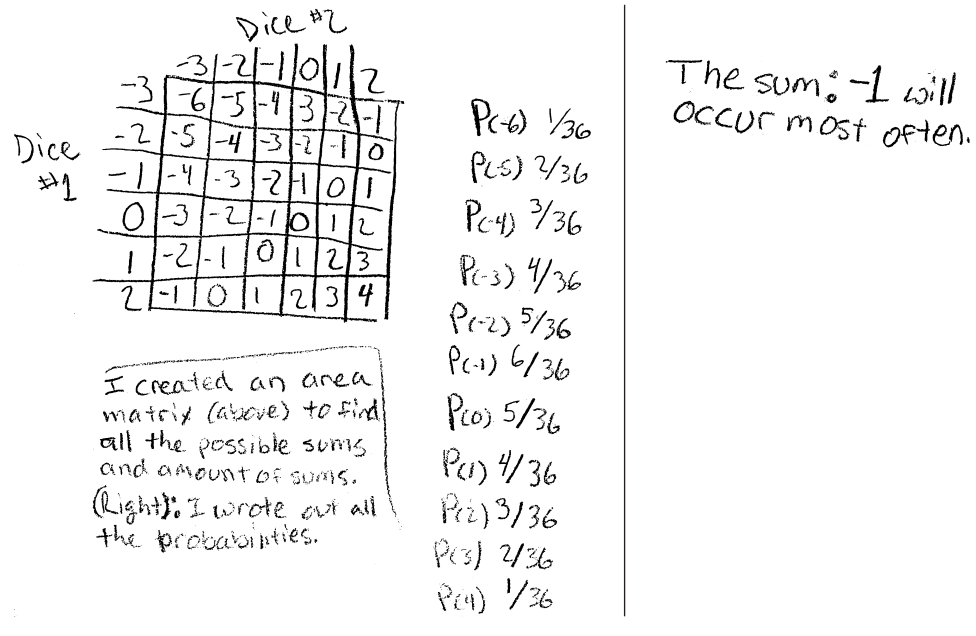 Dice #2
-3 -2 -1 0 1 2
-3 -6 -5 -4 3 -2 -1
Dice #1
-2 -5 -4 -3 -2 -1 0
-1 -4 -3 -2 -1 0 1
0 -3 -2 -1 0 1 2
1 -2 -1 0 1 2 3
2 -1 0 1 2 3 4
I created an area
matrix (above) to find
all the possible sums
and amount of sums.
(Right): I wrote out all
the probabilities.
P(-6) 1/36
P(-5) 2/36
P(-4) 3/36
P(-3) 4/36
P(-2) 5/36
P(-1) 6/36
P(0) 5/36
P(1) 4/36
P(2) 3/36
P(3) 2/36
P(4) 1/36
The sum: -1 will
occur most often.